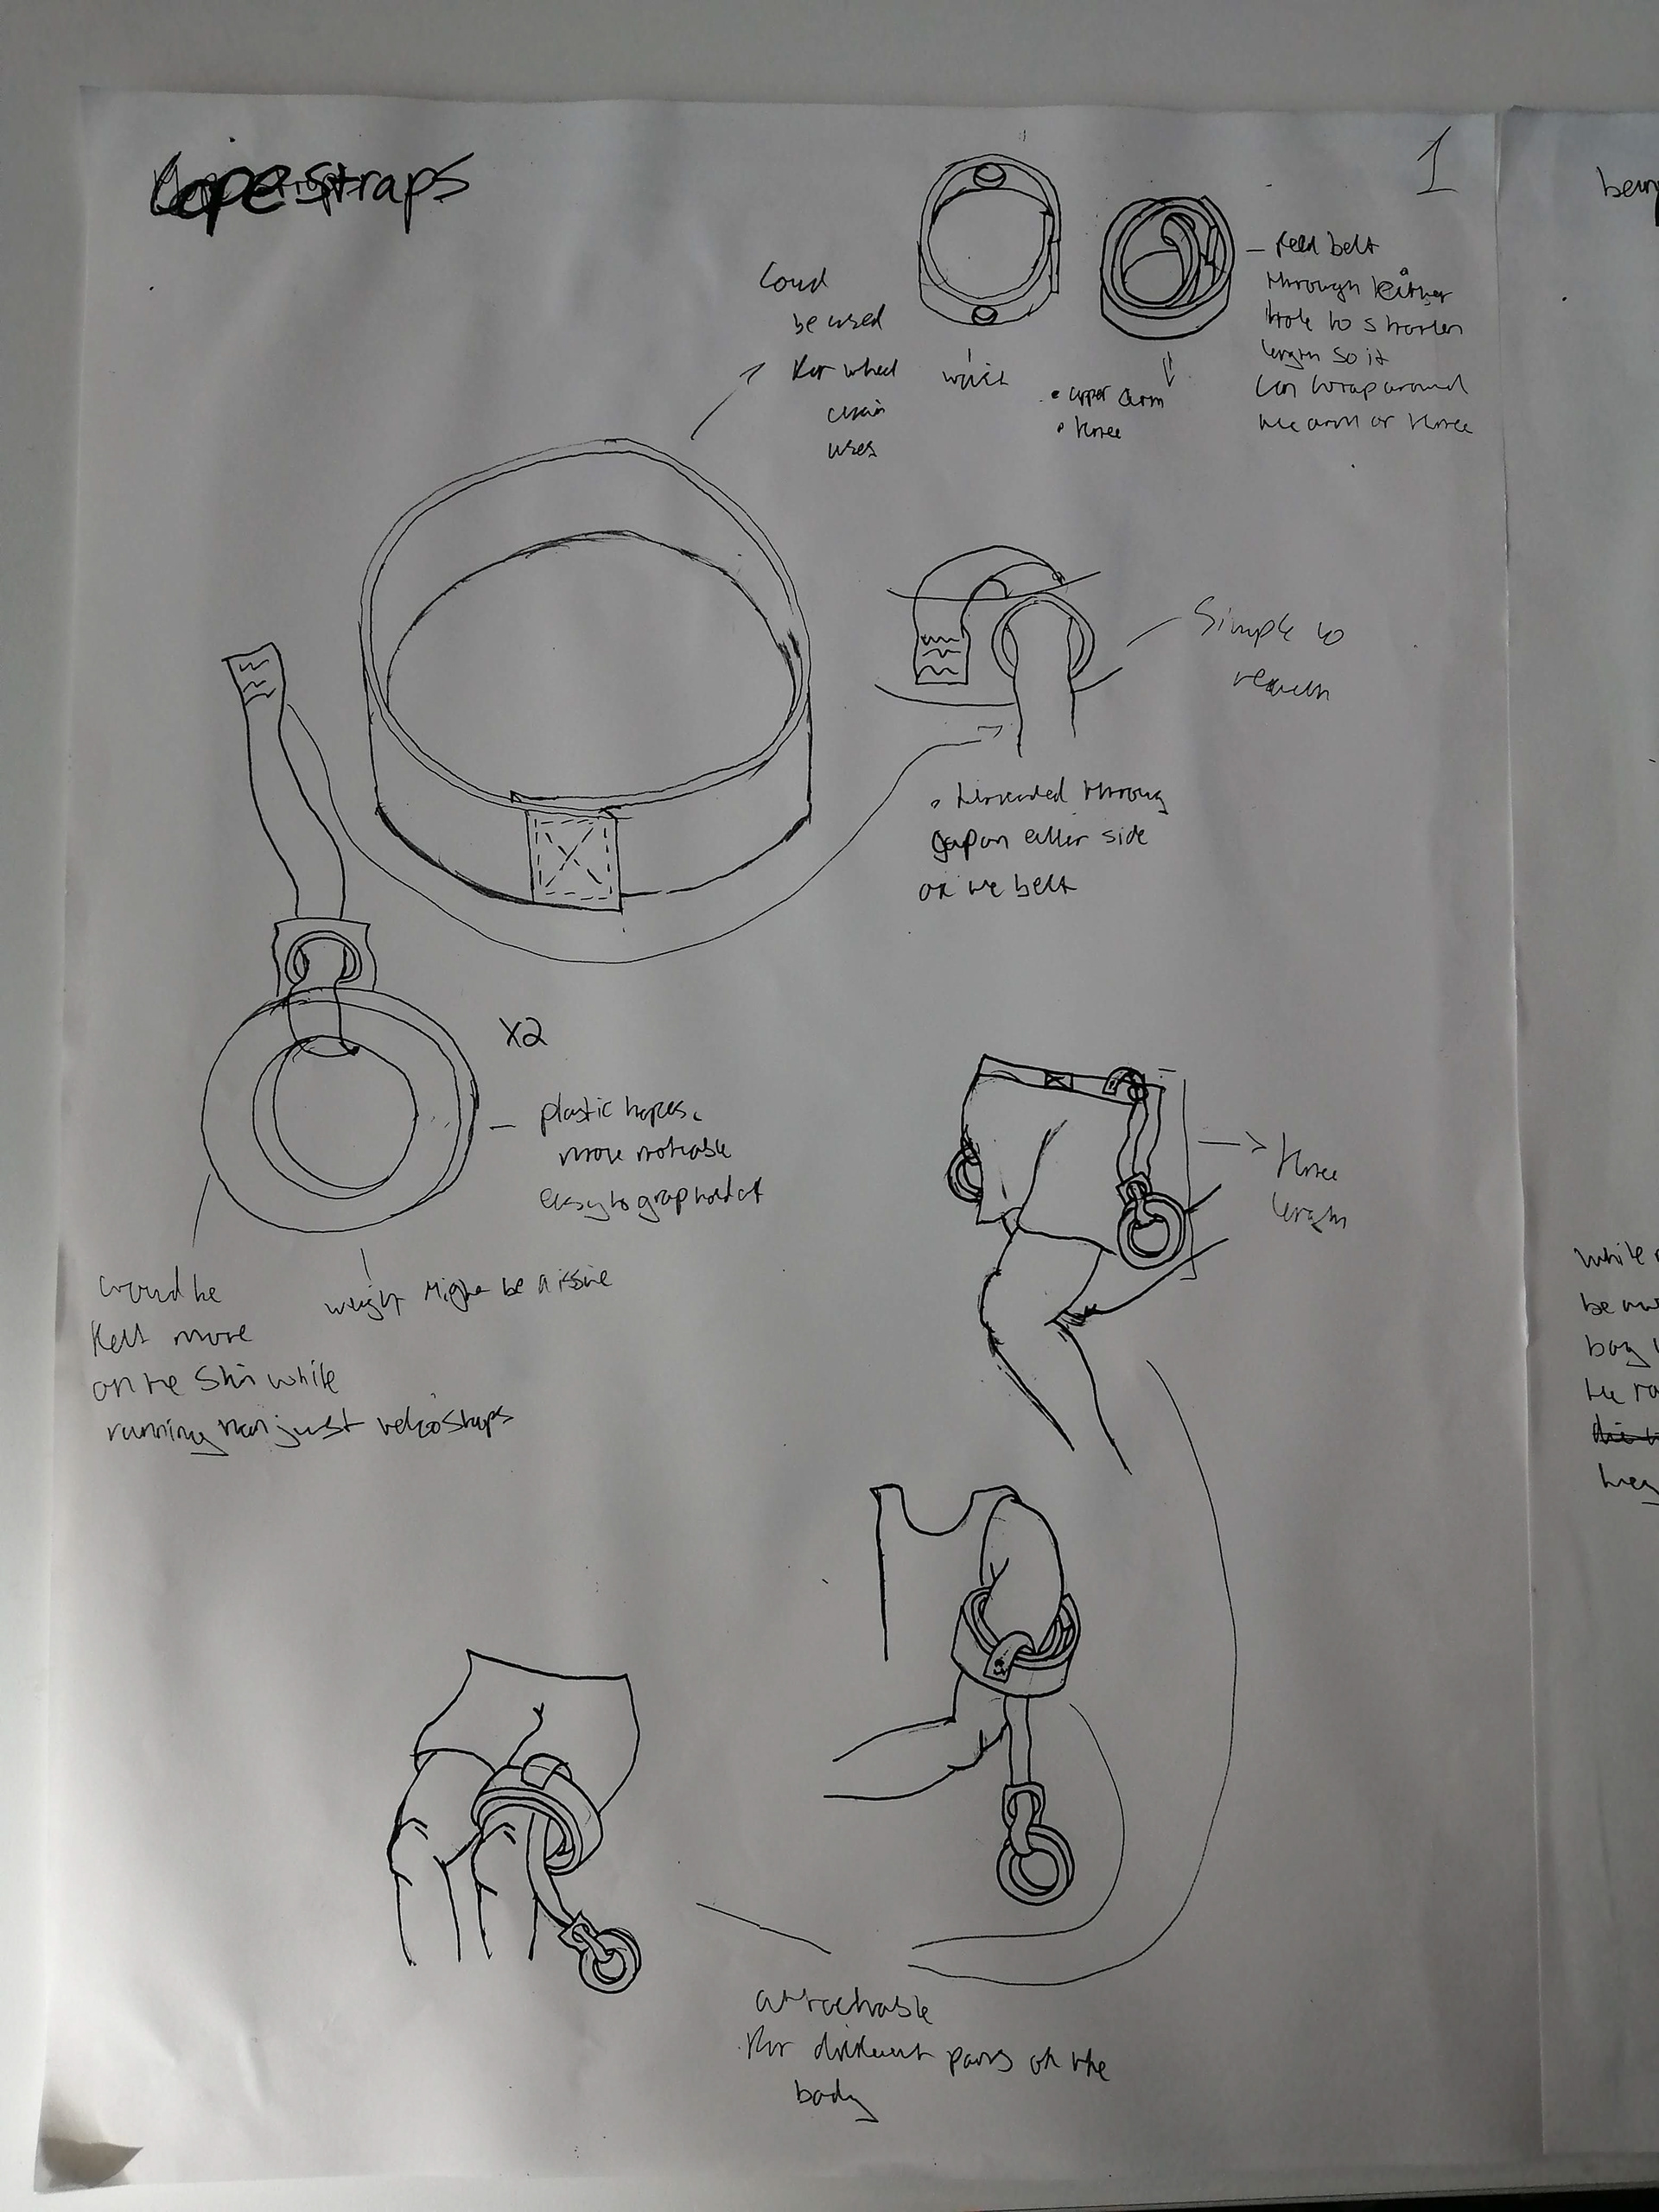 straps
1
Coud
be used
for wheel
chair
uses
waist
• upper arm
• knee
– feed belt
through either
hole to shorten
length so it
can wrap around
the arm or knee
Simple to
• threaded through
gap on either side
of the belt
X2
– plastic hopes.
more noticable
easy to grap hold of
would be
felt more
on the skin while
running than just velcro straps
weight Might be a issue
knee
length
attachable
for different parts of the
body
while
be
bag
the